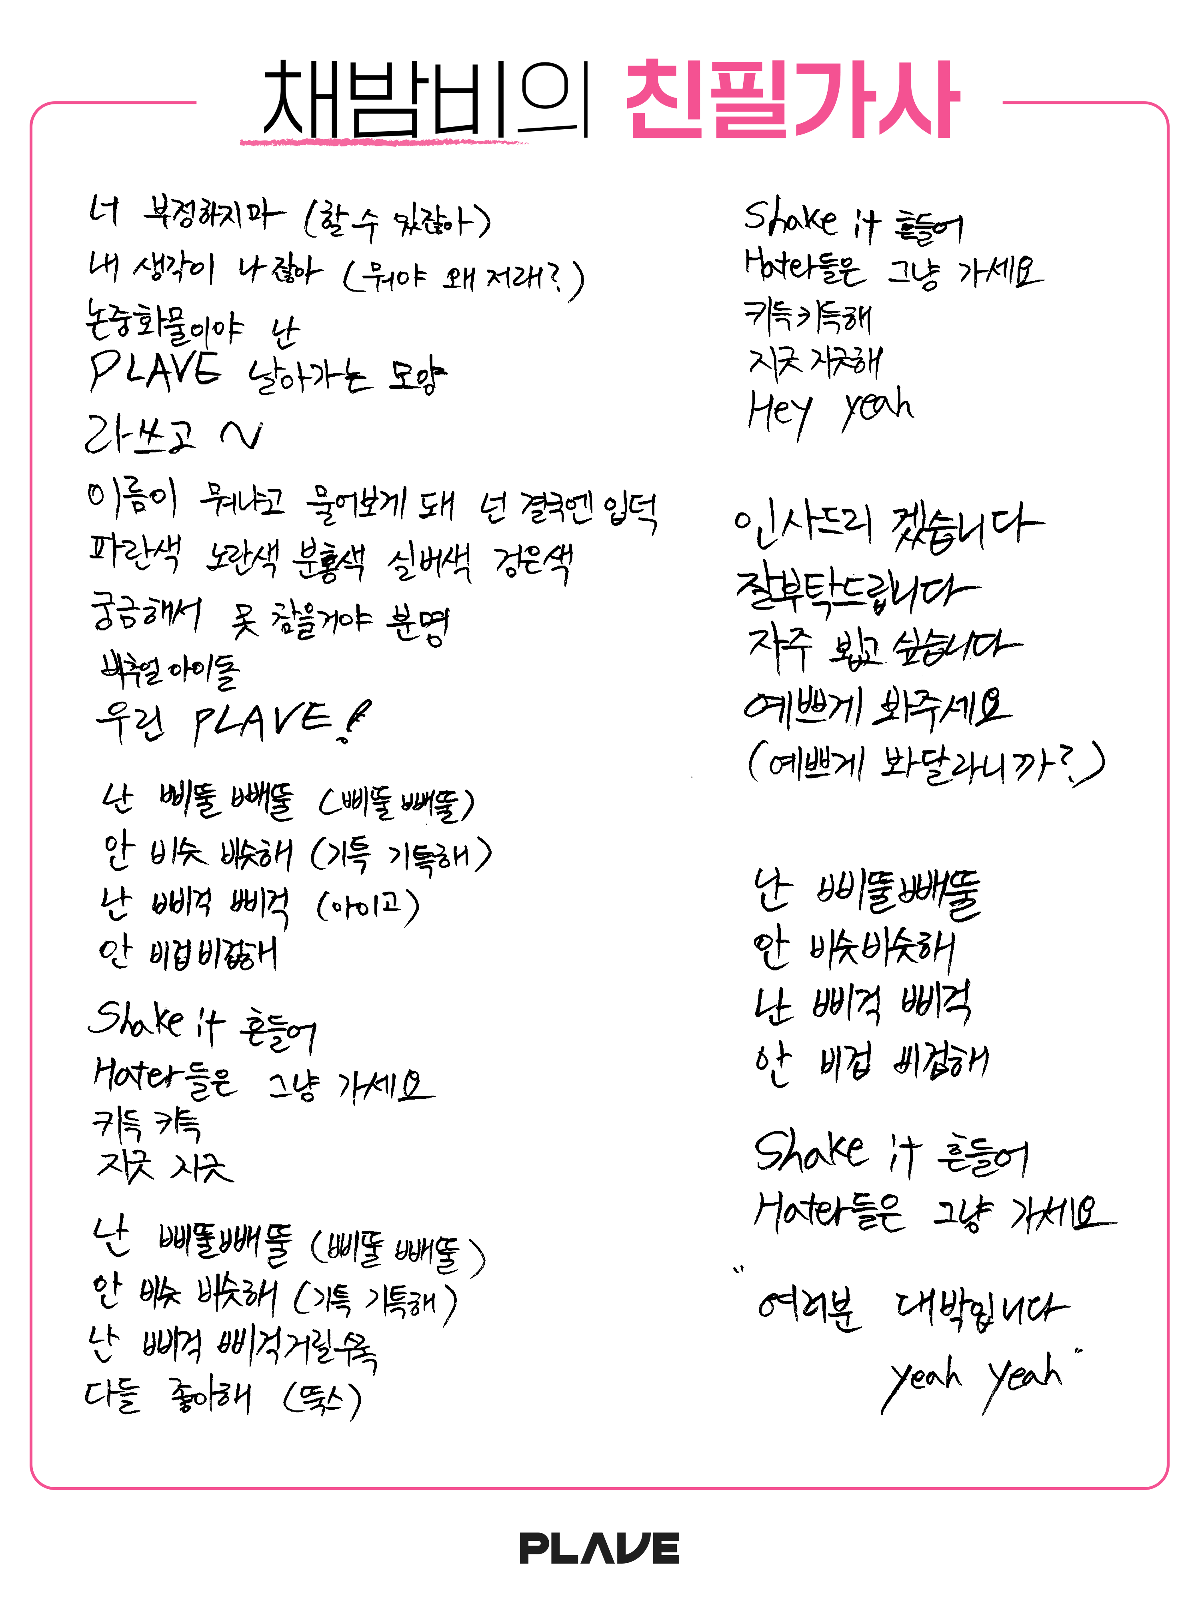 채밤비의 친필가사
너 부정하지마 (할 수 있잖아)
내 생각이 나잖아 (뭐야 왜 저래?)
논중화물이야 난
PLAVE 날아가는 모양
라쓰고 ~
이름이 뭐냐고 물어보게 돼 넌 결국엔 입덕
파란색 노란색 분홍색 실버색 검은색
궁금해서 못 참을거야 분명
버추얼아이돌
우린 PLAVE!
난 삐뚤빼뚤 (삐뚤빼뚤)
안 비슷 비슷해 (기특 기특해)
난 삐걱 삐걱 (아이고)
안 비겁비겁해
Shake it 흔들어
Hater들은 그냥 가세요
키득 키득
지긋 지긋
난 삐뚤빼뚤 (삐뚤 빼뚤)
안 비슷 비슷해 (기특 기특해)
난 삐걱 삐걱거릴수록
다들 좋아해 (뚝스)
Shake it 흔들어
Hater들은 그냥 가세요
키득키득해
지긋지긋해
Hey yeah
인사드리 겠습니다
잘부탁드립니다
자주 뵙고 싶습니다
예쁘게 봐주세요
(예쁘게 봐달라니까?)
난 삐뚤빼뚤
안 비슷비슷해
난 삐걱 삐걱
안 비겁 비겁해
Shake it 흔들어
Hater들은 그냥 가세요
"여러분 대박입니다
yeah yeah"
PLAVE